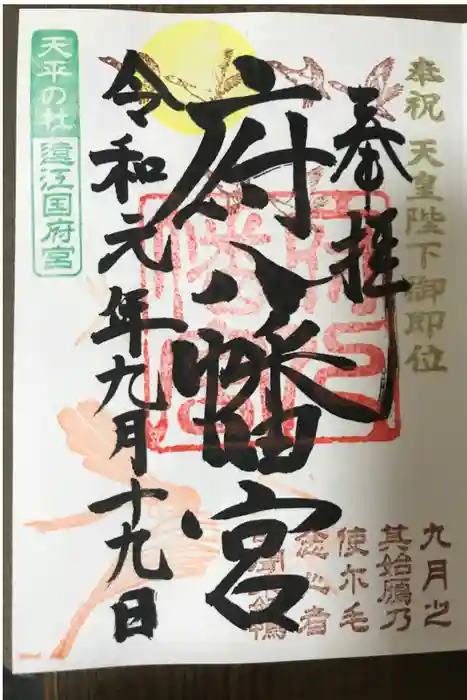 奉祝 天皇陛下御即位
奉拝
府八幡宮
令和元年九月十九日
天平の社
遠江国府宮
九月之
其始鴈乃
使尓毛
念心者
聞 鴨